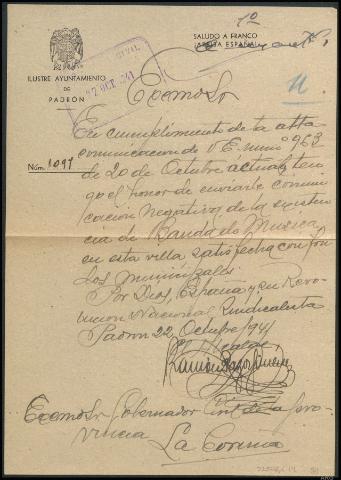 1º
SALUDO A FRANCO
¡ARRIBA ESPAÑA!
ILUSTRE AYUNTAMIENTO
DE
PADRÓN
27 OCT. 1941
Excmo Sr
11
En cumplimiento de la atta
comunicacion de V E. num º 963
Núm. 1097
de 20 de Octubre actual, ten
go el honor de enviarle comuni
cacion negativa de la existen
cia de Banda de Musica
en esta villa satisfecha con fon
dos municipales.
Por Dios, España y su Revo
lucion Nacional Sindicalista
Padron 22 Octubre 1941
El Alcalde
Ramón
Excmo Sr. Gobernador Civil de la pro
vincia
La Coruña